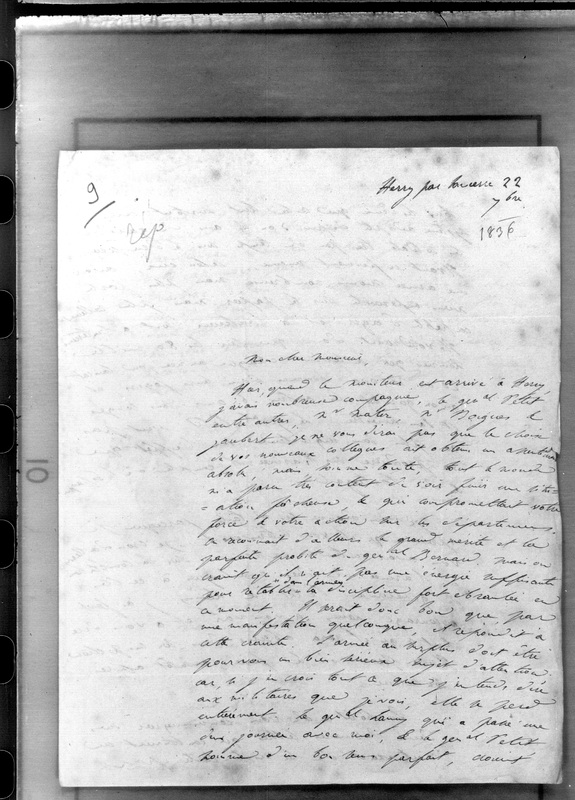 9
rép
Herry par Sancerre 22
7bre
1836
Mon cher Monsieur,
Hier, quand le moniteur est arrivé à Herry,
j'avais nombreuse compagnie, le genal Petit
entre autres, Mr Mater Mr Bourges &
Jaubert. je ne vous dirai pas que le choix
de vos nouveaux collègues ait obtenu un
absolu, mais somme toute, tout le monde
m'a paru très content de voir finir une situ-
-ation fâcheuse, & qui compromettait votre
force & votre action sur les départemens.
on reconnait d'ailleurs le grand mérite et la
parfaite probité du genal Bernard, mais on
craint qu'il n'ait pas une énergie suffisante
pour rétablir dans l'armée la discipline fort ébranlée en
ce moment. Il serait donc bon que, par
une manifestation quelconque, il répondit à
cette crainte. l'armée au surplus doit être
pour vous un bien sérieux sujet d'attention,
car, si j'en crois tout ce que j'entends dire
aux militaires que je vois, elle se perd
entièrement. le genal qui a passé une
journée avec moi, & le genal Petit
homme d'un bon sens parfait,